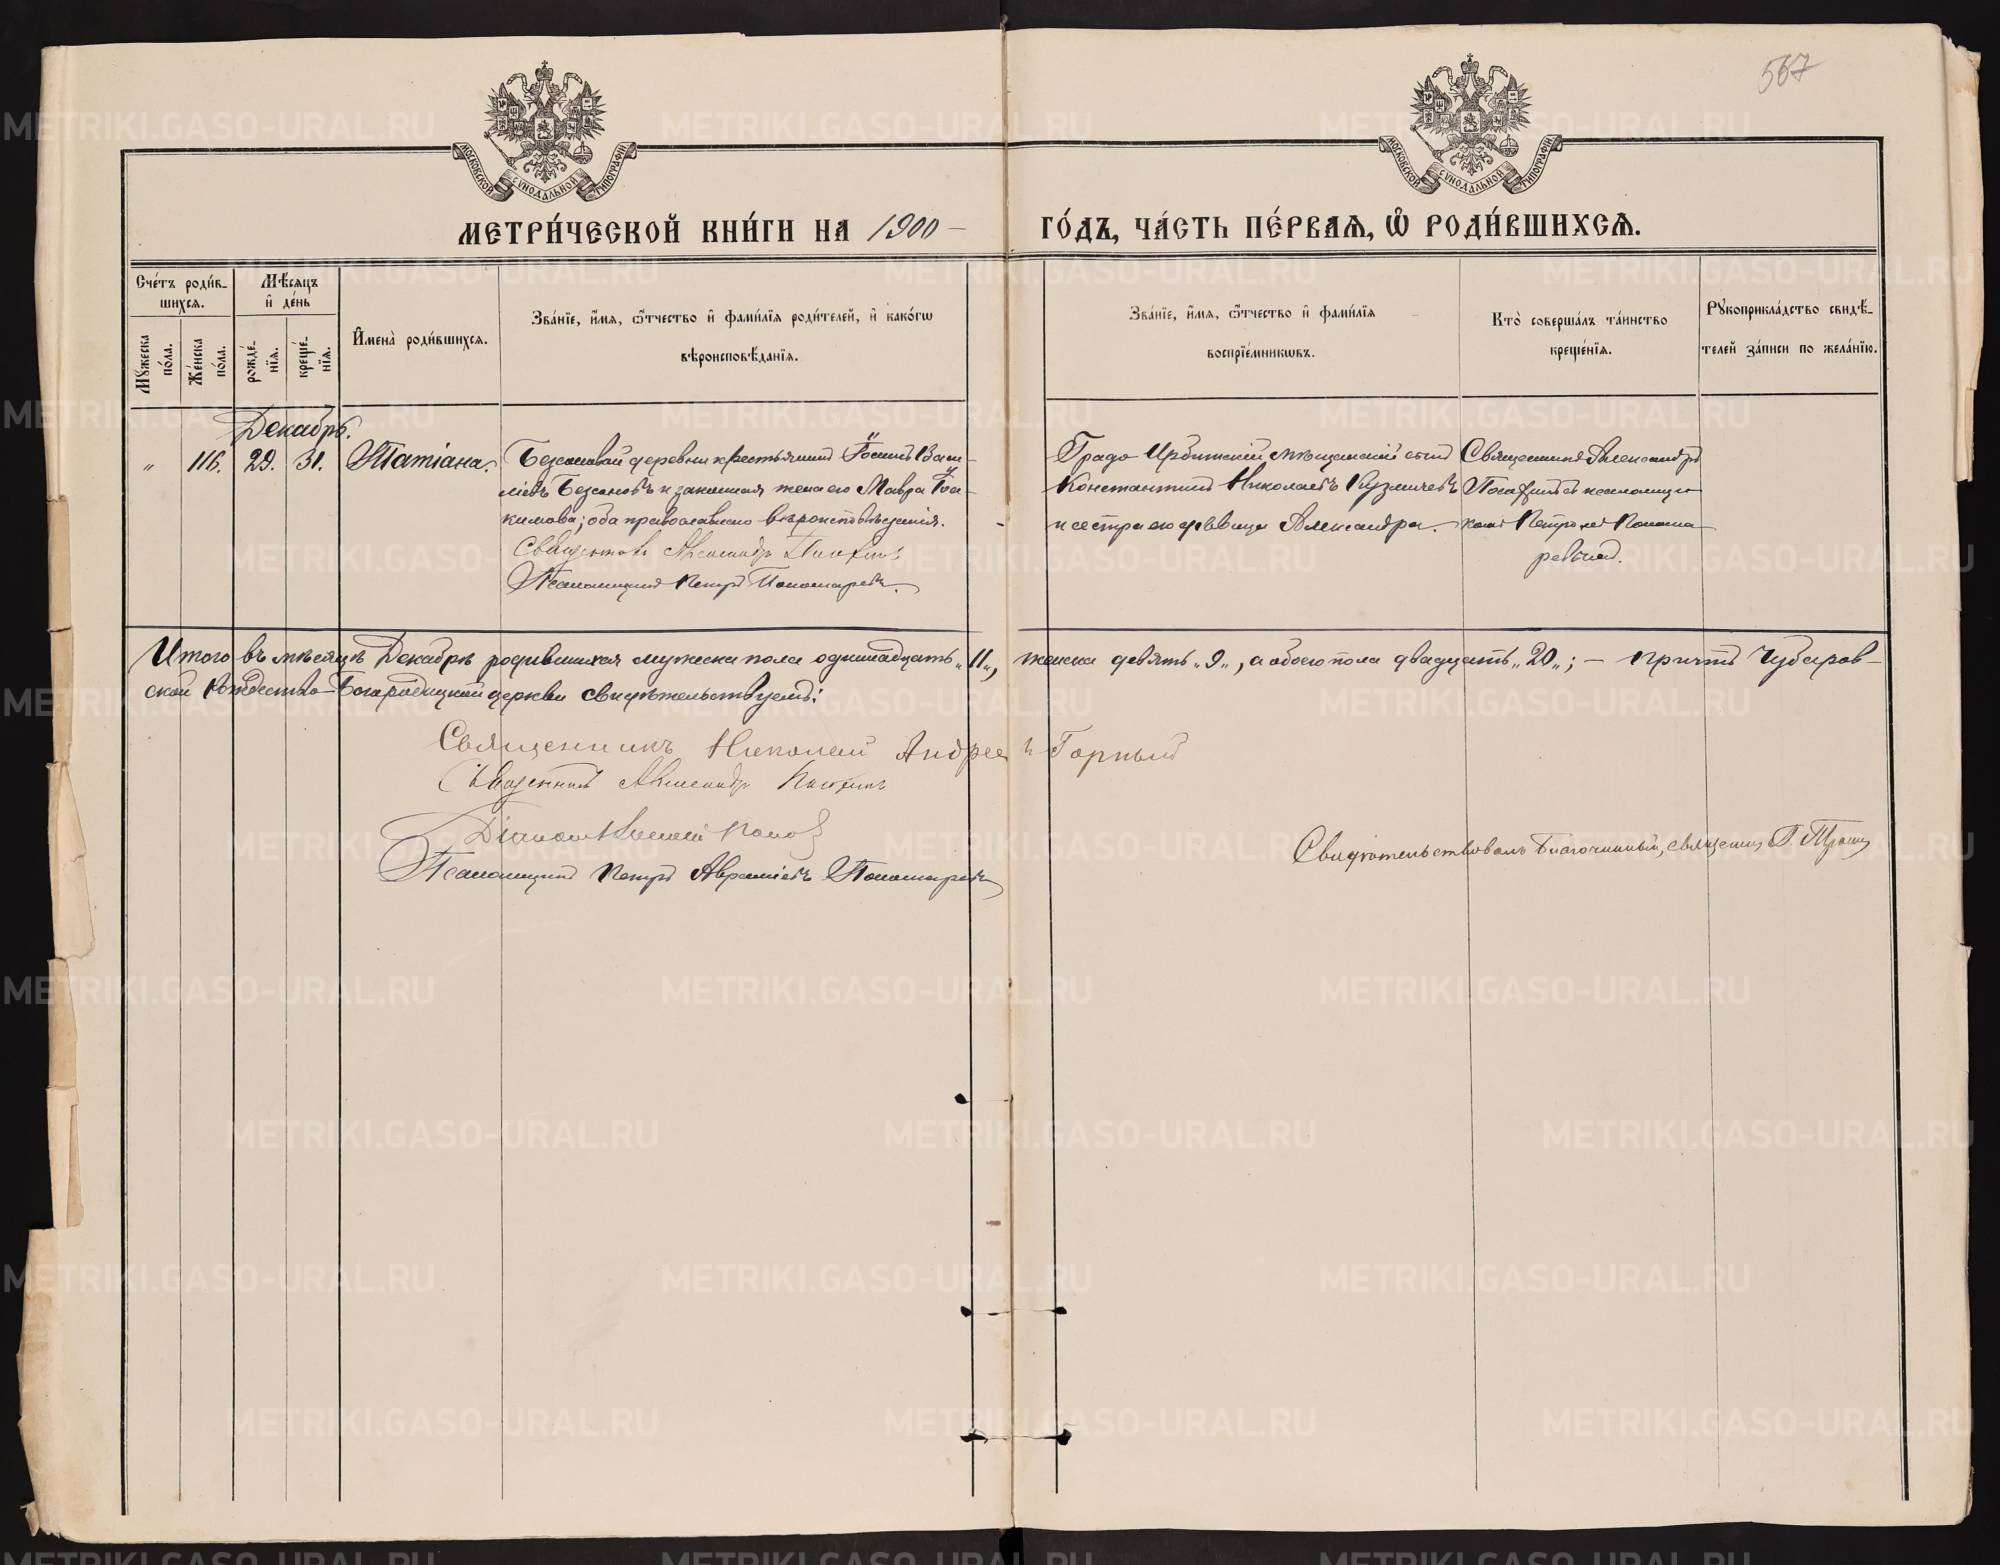 567
МОСКОВСКОЙ СѴНОДАЛЬНОЙ ТИПОГРАФІИ
МОСКОВСКОЙ СѴНОДАЛЬНОЙ ТИПОГРАФІИ
МЕТРИ́ЧЕСКОЙ КНИ́ГИ НА 1900 – ГО́ДЪ, ЧА́СТЬ ПЕ́РВАѦ, Ѽ РОДИ́ВШИХСѦ.
Сче́тъ роди́в-
шихсѧ.
Мѣ́сяцъ
и҆ де́нь
Мꙋжеска
по́ла.
Же́нска
по́ла.
рожде́-
нїѧ.
креще́-
нїѧ.
И҆мена̀ роди́вшихсѧ.
Зва́нїе, и҆́мѧ, ѻ҆́тчество и҆ фами́лїѧ роди́телей, и҆ како́гѡ
вѣроисповѣ́данїѧ.
Зва́нїе, и҆́мѧ, ѻ҆́тчество и҆ фами́лїѧ
воспрїе́мникѡвъ.
Кто̀ соверша́лъ та́инство
креще́нїѧ.
Рꙋкоприкла́дство свидѣ́-
телей за́писи по жела́нїю.
Декабрь.
„ 116. 29. 31. Татіана.
деревни крестьянинъ Іосифъ Васи-
льевъ и законная жена его Мавра Іоа-
кимова; оба православнаго вѣроисповѣданія.
Священникъ Александръ
Псаломщикъ Петръ Пономаревъ.
Градо Ирбитскій мѣщанскій сынъ
Константинъ Николаевъ Кузмичевъ
и сестра его дѣвица Александра.
Священникъ Александръ
съ псаломщи-
комъ Петромъ Понома-
ревымъ.
Итого въ мѣсяцѣ Декабрѣ родившихся мужеска пола одиннадцать „11„, женска девять „9„, а обоего пола двадцать „20„; – причтъ Чубаров-
ской Рождество-Богородицкой церкви свидѣтельствуемъ:
Священникъ Николай Андреевъ Горный
Священникъ Александръ
Діаконъ Попов
Псаломщикъ Петръ Пономаревъ
Свидѣтельствовалъ Благочинный, священникъ
METRIKI.GASO-URAL.RU